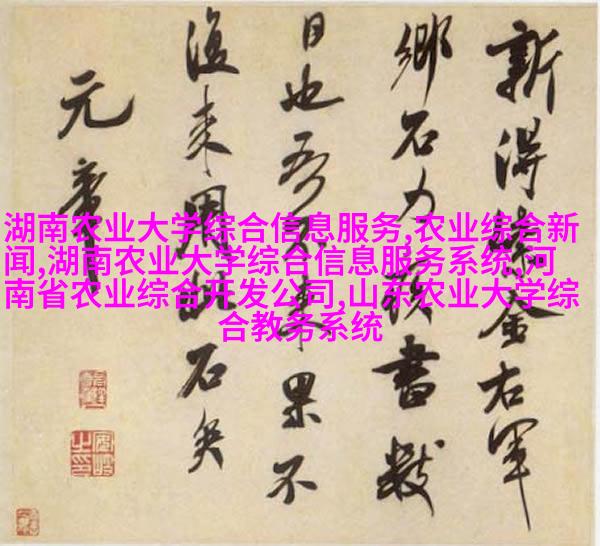 新得紫金右軍
鄉石力疾書數
日也吾不來果不
復来用此石矣
元章
湖南农业大学综合信息服务,农业综合新
闻,湖南农业大学综合信息服务系统,河
南省农业综合开发公司,山东农业大学综
合教务系统